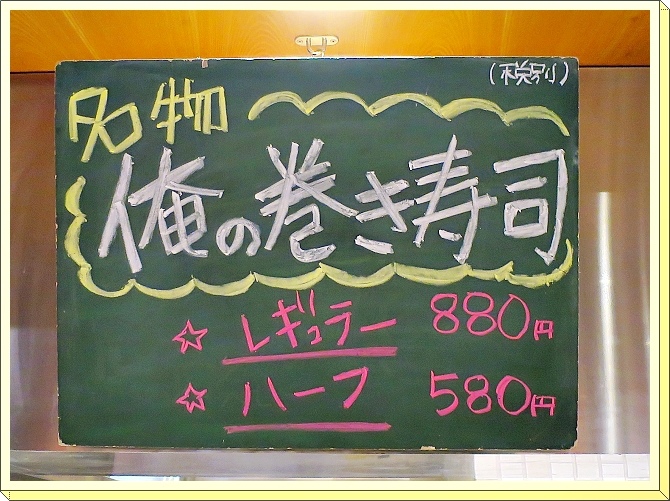 （税別）
名物
俺の巻き寿司
☆ レギュラー 880円
☆ ハーフ 580円